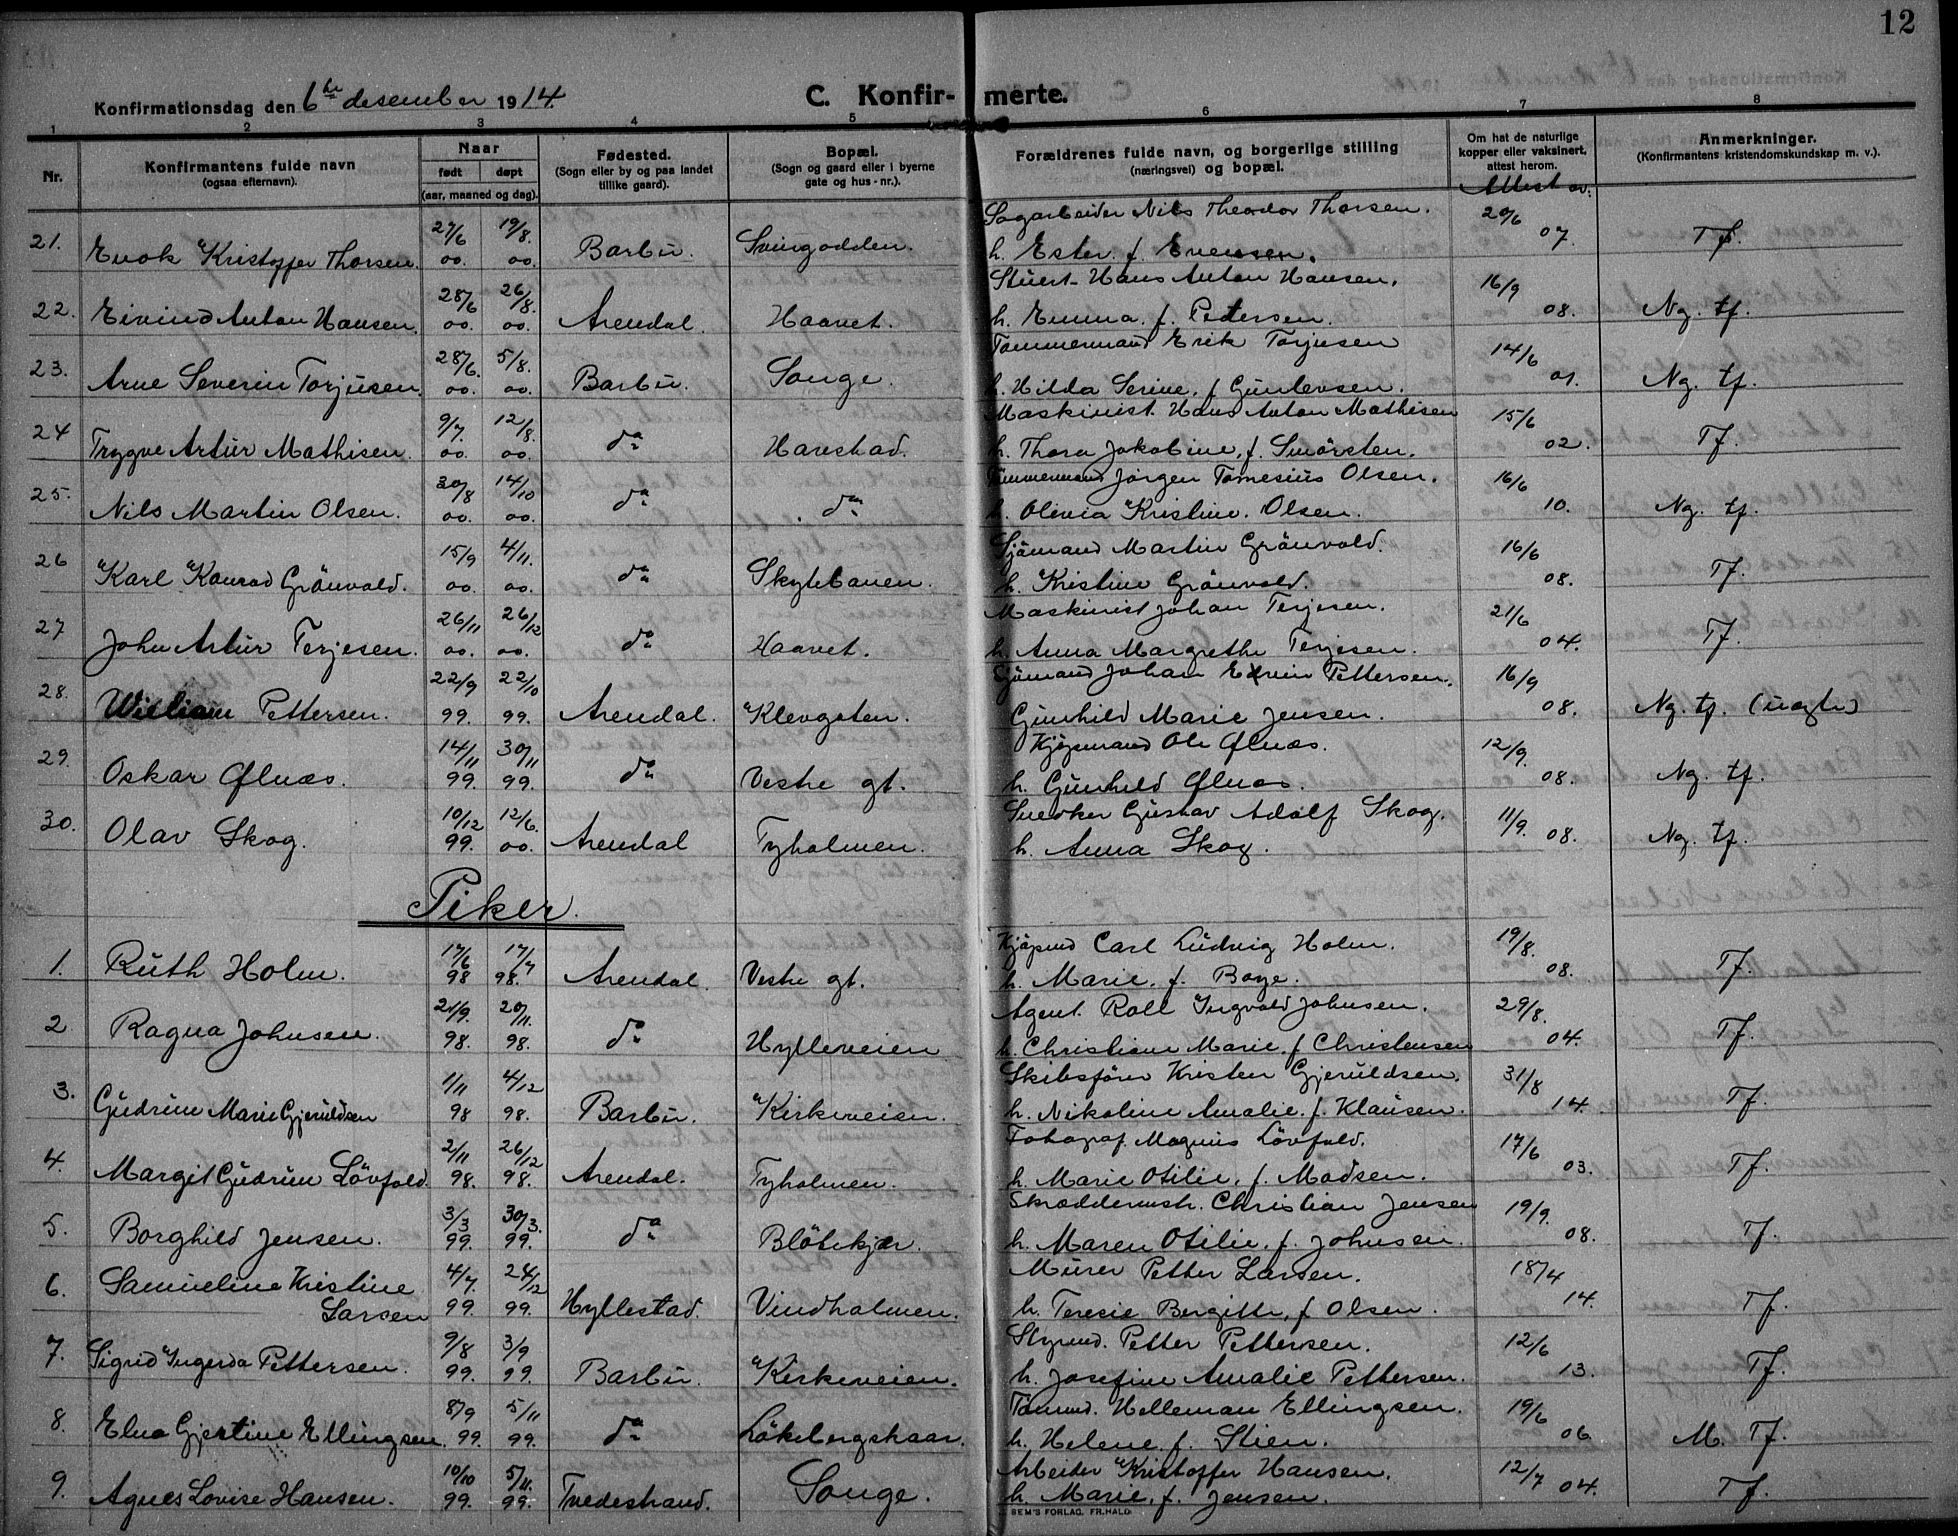 12
Konfirmationsdag den 6te desember 1914. C. Konfir- merte.
1 2 3 4 5 6 7 8
Nr. Konfirmantens fulde navn (ogsaa efternavn). Naar født døpt (aar, maaned og dag). Fødested. (Sogn eller by og paa landet tillike gaard). Bopæl. (Sogn og gaard eller i byerne gate og hus-nr.). Forældrenes fulde navn, og borgerlige stilling (næringsvei) og bopæl. Om hat de naturlige kopper eller vaksinert, attest herom. Anmerkninger. (Konfirmantens kristendomskundskap m. v.).
Attest av.
27/6 19/8. Sagarbeider Nils Theodor Thorsen. 20/6
21. Enok Kristoffer Thorsen. 00. 00. Barbu. Svingodden. h. Ester. f. Evensen. 07. Tf.
28/6 26/8. Stuert Hans Anton Hansen. 16/9
22. Eivind Anton Hansen. 00. 00. Arendal. Haavet. h. Emma. f. Pedersen. 08. Ng. tf.
28/6. 5/8. Tømmermand Erik Torjusen 14/6
23. Arne Severin Torjusen. 00. 00. Barbu. Songe. h. Hilda Serine. f. Guntevsen. 01. Ng. tf.
9/7. 12/8. Maskinist. Hans Anton Mathisen 15/6
24 Trygve Artur Mathisen. 00. 00. do Harestad. h. Thora Jakobine. f. Smörsten. 02. Tf.
30/8 14/10 Tømmermand Jörgen Tomesius Olsen. 16/6
25. Nils Martin Olsen. 00. 00. do do h. Olevia Kristine. Olsen. 10. Ng. tf.
15/9 4/11. Sjömand Martin Grönvold. 16/6
26 Karl Konrad Grönvold. 00. 00. do Skytebanen. h. Kristine Grönvold. 08. Tf.
26/11 26/12 Maskinist Johan Terjesen. 21/6
27 John Artur Terjesen. 00. 00. do Haavet. h. Anna Margrethe Terjesen. 04. Tf.
22/9 22/10 Sjömand Johan Edvin Pettersen. 16/9
28. William Pettersen. 99. 99. Arendal. Klevgaten. Gunhild Marie Jensen. 08. Ng. tf. (uegte)
14/11 30/11 Kjøpmand Ole Ølnæs. 12/9.
29. Oskar Ølnæs. 99. 99. do Vestre gt. h. Gunhild Ølnæs. 08. Ng. tf.
10/12 12/6. Snedker Gustav Adolf Skog. 11/9.
30. Olav Skog. 99. 00. Arendal Tyholmen. h. Anna Skog. 08. Ng. tf.
Piker.
17/6 17/7 Kjøpmd Carl Ludvig Holm. 19/8.
1. Ruth Holm. 98 98. Arendal. Vestre gt. h. Marie. f. Boye. 08. Tf.
21/9. 20/11. Agent. Roll Ingvald Johnsen. 29/8.
2 Ragna Johnsen. 98. 98. do Hylleveien h. Christiane Marie. f. Christensen 04. Tf.
1/11 4/12 Skibsfören Kristen Gjeruldsen. 31/8
3. Gudrun Marie Gjeruldsen 98 98. Barbu. Kirkeveien. h. Nikoline Amalie. f. Klausen. 14. Tf.
2/11 26/12 Fotograf Magnus Lövfold. 17/6
4. Margit Gudrun Lövfold. 98. 98. Arendal. Tyholmen. h. Marie Otilie. f. Madsen. 03. Tf.
3/3 30/3. Skræddermstr. Christian Jensen 19/9.
5. Borghild Jensen. 99. 99. do Blötekjær. h. Maren Otilie. f. Johnsen. 08. Tf.
Samueline Kristine 4/7 24/12 Murer Petter Larsen. 18/4
6. Larsen 99. 99. Hyllestad. Vindholmen. h. Teresie Bergitte, f. Olsen. 14. Tf.
9/8 3/9 Styrmd. Petter Pettersen. 12/6
7. Sigrid Ingerda Pettersen. 99. 99. Barbu. Kirkeveien. h. Josefine Amalie Pettersen. 13. Tf.
8/9 5/11 Tömmd. Helleman Ellingsen. 19/6
8. Elna Gjertine Ellingsen. 99. 99. do Lökebergskaar. h. Helene. f. Stien. 06 M. Tf.
10/10 5/11. Arbeider Kristoffer Hansen. 12/7
9. Agnes Lovise Hansen. 99. 99. Tvedestrand. Songe. h. Marie. f. Jensen. 04. Tf.
SEM'S FORLAG, FR.HALD.